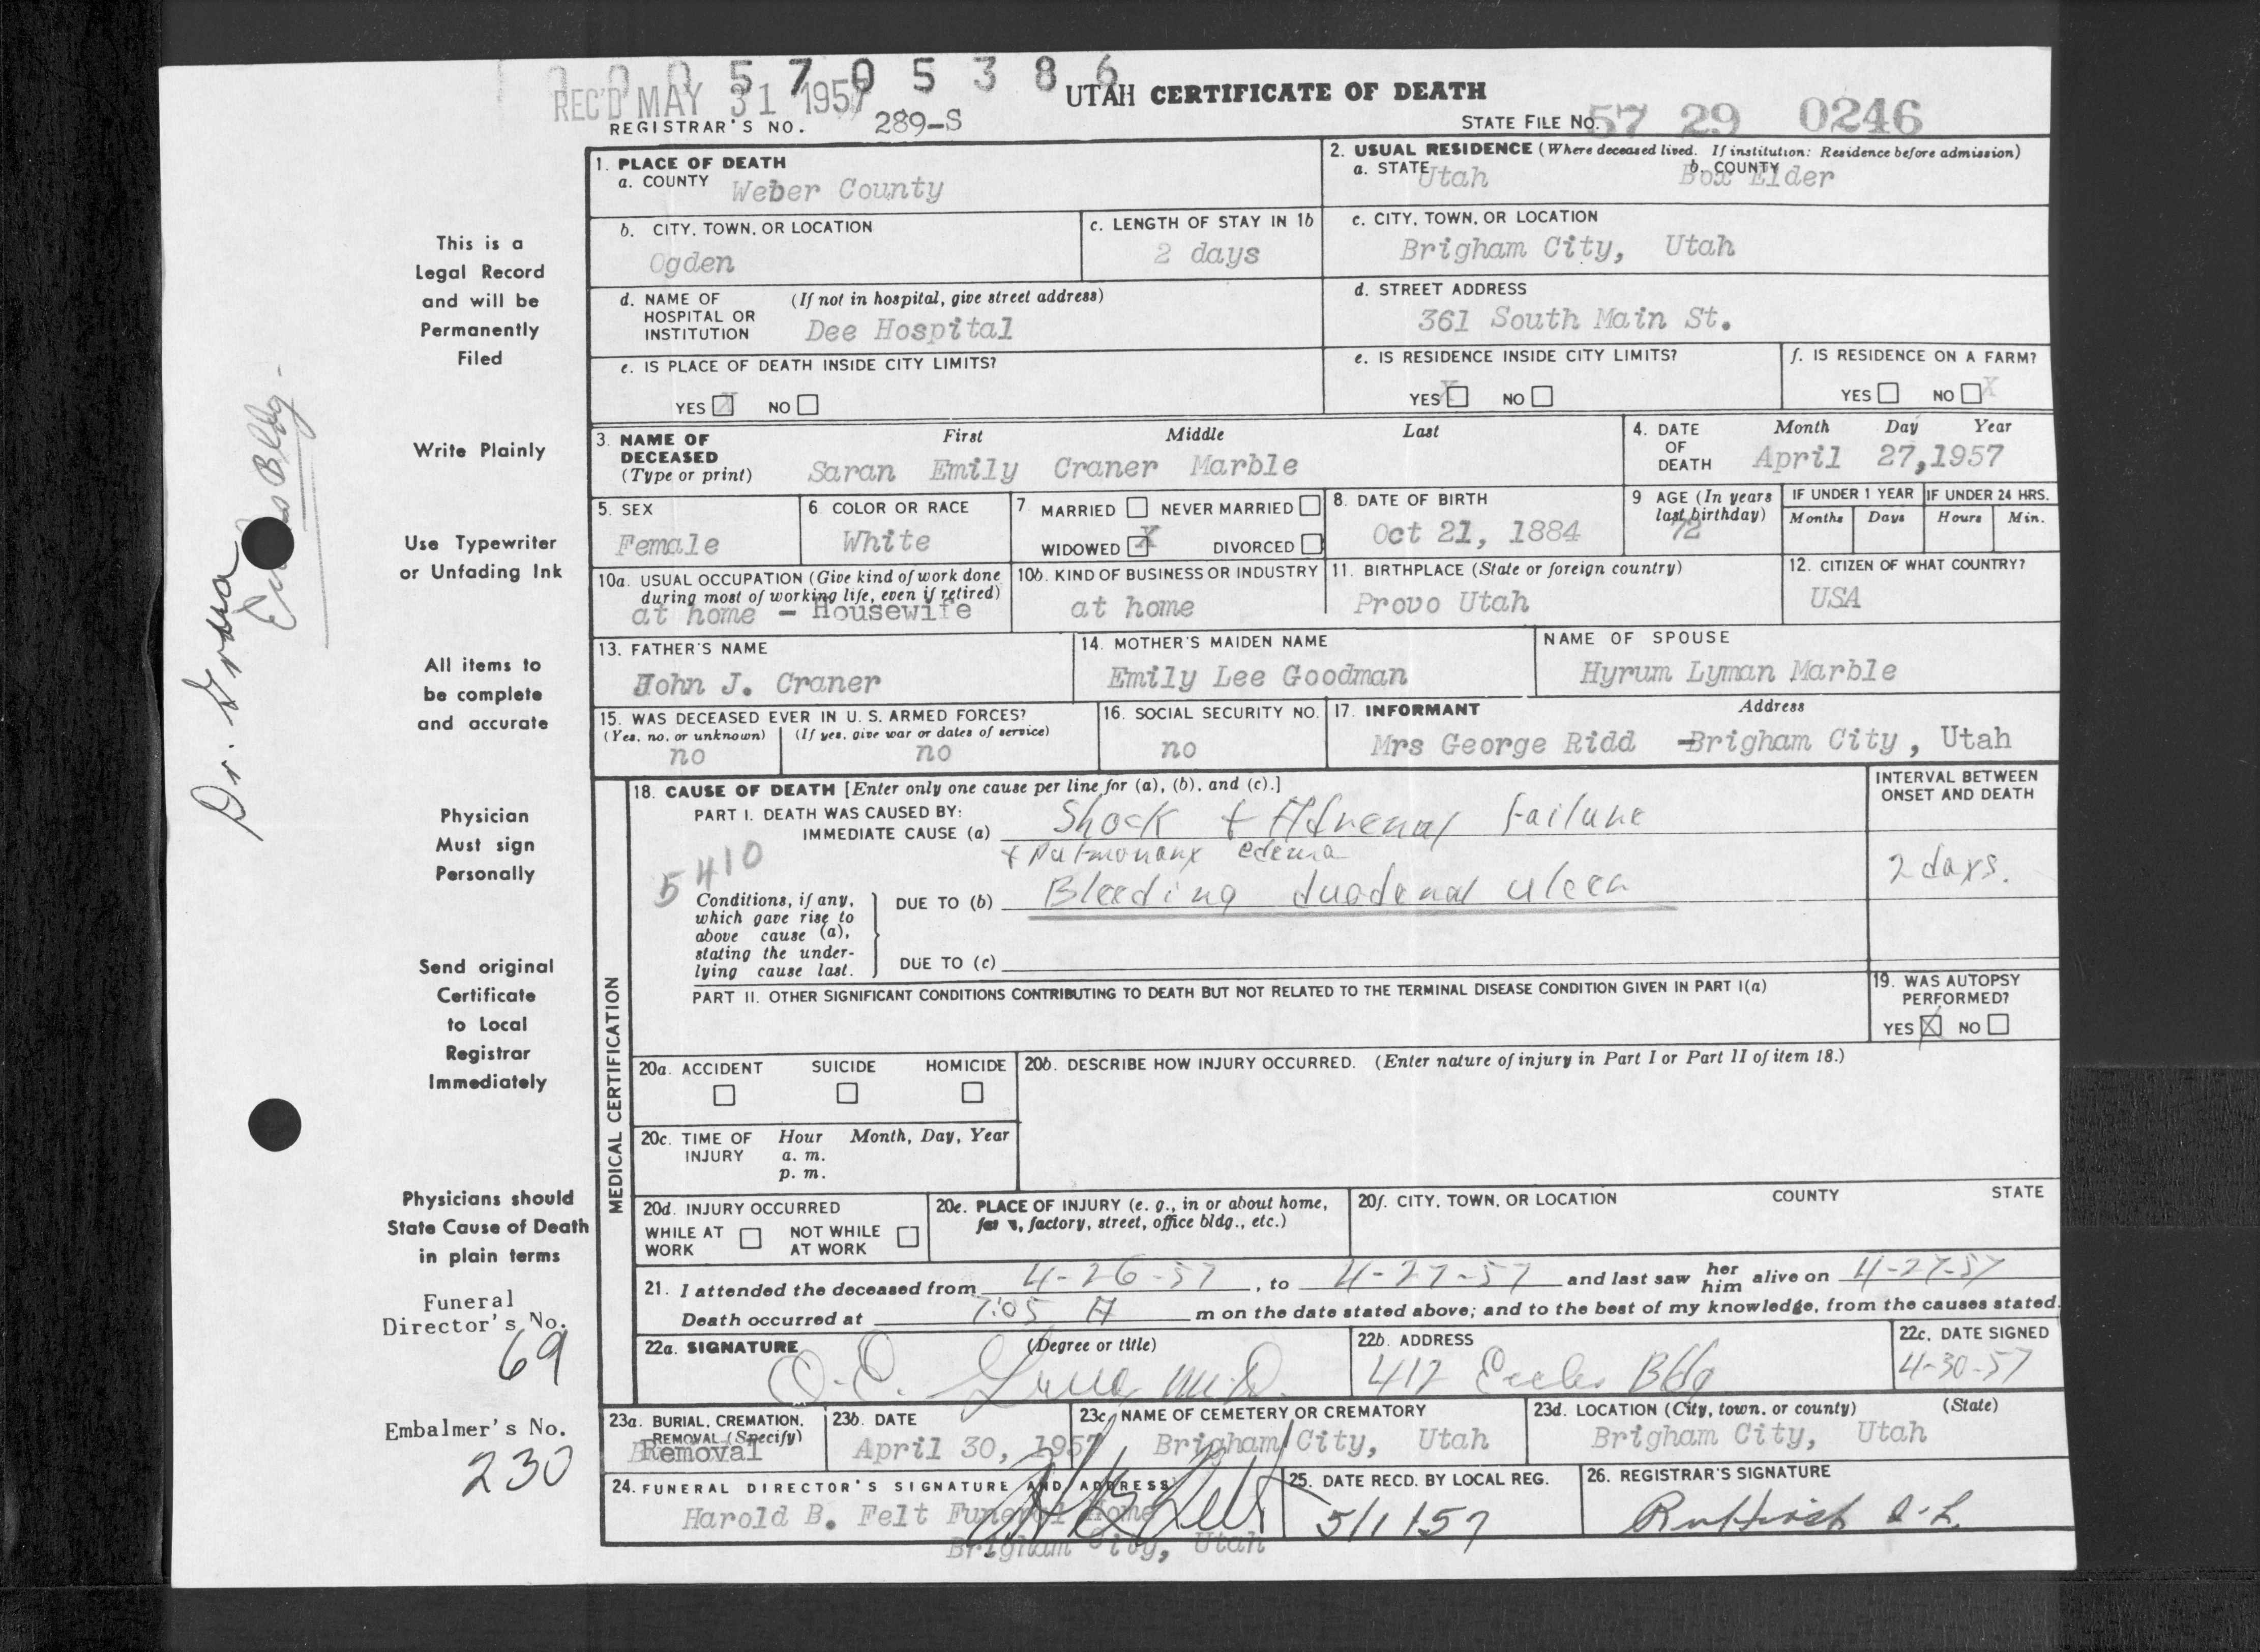 0 0 0 5 7 0 5 3 8 6
REC'D MAY 31 1957
UTAH CERTIFICATE OF DEATH
REGISTRAR'S NO. 289-S
STATE FILE NO. 57 29 0246
1. PLACE OF DEATH
a. COUNTY Weber County
2. USUAL RESIDENCE (Where deceased lived. If institution: Residence before admission)
a. STATE Utah b. COUNTY Box Elder
b. CITY, TOWN, OR LOCATION
Ogden
c. LENGTH OF STAY IN 1b
2 days
c. CITY, TOWN, OR LOCATION
Brigham City, Utah
d. NAME OF HOSPITAL OR INSTITUTION (If not in hospital, give street address)
Dee Hospital
d. STREET ADDRESS
361 South Main St.
e. IS PLACE OF DEATH INSIDE CITY LIMITS?
YES X NO
e. IS RESIDENCE INSIDE CITY LIMITS?
YES X NO
f. IS RESIDENCE ON A FARM?
YES NO X
3. NAME OF DECEASED (Type or print) First Middle Last
Saran Emily Craner Marble
4. DATE OF DEATH Month Day Year
April 27,1957
5. SEX
Female
6 COLOR OR RACE
White
7. MARRIED NEVER MARRIED
WIDOWED X DIVORCED
8. DATE OF BIRTH
Oct 21, 1884
9 AGE (In years last birthday)
72
IF UNDER 1 YEAR
Months Days
IF UNDER 24 HRS.
Hours Min.
10a. USUAL OCCUPATION (Give kind of work done during most of working life, even if retired)
at home - Housewife
10b. KIND OF BUSINESS OR INDUSTRY
at home
11. BIRTHPLACE (State or foreign country)
Provo Utah
12. CITIZEN OF WHAT COUNTRY?
USA
13. FATHER'S NAME
John J. Craner
14. MOTHER'S MAIDEN NAME
Emily Lee Goodman
NAME OF SPOUSE
Hyrum Lyman Marble
15. WAS DECEASED EVER IN U. S. ARMED FORCES?
(Yes, no, or unknown) (If yes, give war or dates of service)
no no
16. SOCIAL SECURITY NO.
no
17. INFORMANT Address
Mrs George Ridd -Brigham City, Utah
MEDICAL CERTIFICATION
18. CAUSE OF DEATH [Enter only one cause per line for (a), (b), and (c).]
PART I. DEATH WAS CAUSED BY:
IMMEDIATE CAUSE (a) Shock + Adrenal failure
+ Pulmonary edema
5410
Conditions, if any, which gave rise to above cause (a), stating the underlying cause last.
DUE TO (b) Bleeding duodenal ulcer
DUE TO (c)
INTERVAL BETWEEN ONSET AND DEATH
2 days.
PART II. OTHER SIGNIFICANT CONDITIONS CONTRIBUTING TO DEATH BUT NOT RELATED TO THE TERMINAL DISEASE CONDITION GIVEN IN PART I(a)
19. WAS AUTOPSY PERFORMED?
YES X NO
20a. ACCIDENT SUICIDE HOMICIDE
20b. DESCRIBE HOW INJURY OCCURRED. (Enter nature of injury in Part I or Part II of item 18.)
20c. TIME OF INJURY Hour Month, Day, Year
a. m.
p. m.
20d. INJURY OCCURRED
WHILE AT WORK NOT WHILE AT WORK
20e. PLACE OF INJURY (e. g., in or about home, farm, factory, street, office bldg., etc.)
20f. CITY, TOWN, OR LOCATION COUNTY STATE
21. I attended the deceased from 4-26-57, to 4-27-57 and last saw her him alive on 4-27-57
Death occurred at 7:05 A m on the date stated above; and to the best of my knowledge, from the causes stated.
22a. SIGNATURE (Degree or title)
M.D.
22b. ADDRESS
412 Eccles Bldg
22c. DATE SIGNED
4-30-57
23a. BURIAL, CREMATION, REMOVAL (Specify)
Removal
23b. DATE
April 30, 1957
23c. NAME OF CEMETERY OR CREMATORY
Brigham City, Utah
23d. LOCATION (City, town, or county) (State)
Brigham City, Utah
24. FUNERAL DIRECTOR'S SIGNATURE AND ADDRESS
Harold B. Felt Funeral Home
Brigham City, Utah
25. DATE RECD. BY LOCAL REG.
5/1/57
26. REGISTRAR'S SIGNATURE
This is a
Legal Record
and will be
Permanently
Filed
Write Plainly
Use Typewriter
or Unfading Ink
All items to
be complete
and accurate
Physician
Must sign
Personally
Send original
Certificate
to Local
Registrar
Immediately
Physicians should
State Cause of Death
in plain terms
Funeral
Director's No.
69
Embalmer's No.
230
Dr.
Bldg.